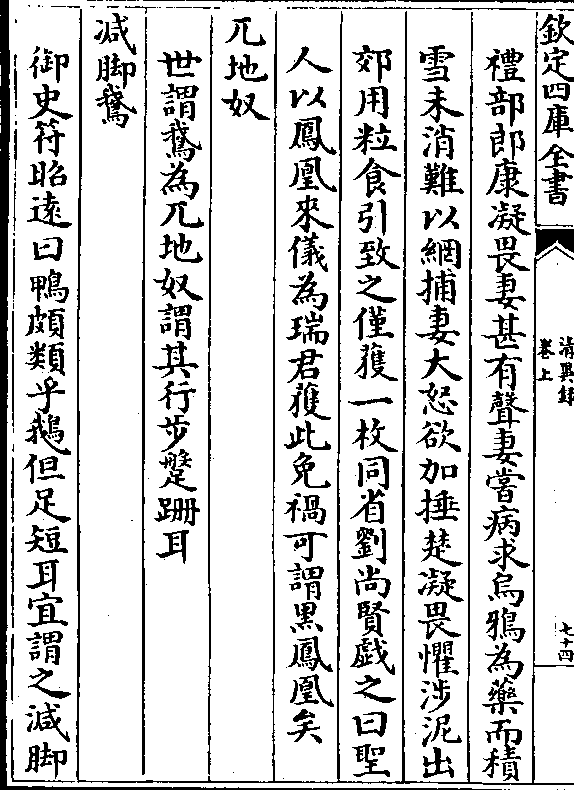 欽定四庫全書
清異錄
卷上
七十四
禮部郎康凝畏妻甚有聲妻嘗病求烏鴉為藥而積
雪未消難以網捕妻大怒欲加捶楚凝畏懼涉泥出
郊用粒食引致之僅獲一枚同省劉尚賢戯之曰聖
人以鳳凰來儀為瑞君獲此免禍可謂黑鳳凰矣
兀地奴
世謂鵞為兀地奴謂其行步蹩跚耳
減脚鵞
御史符昭遠曰鴨頗類乎鵝但足短耳宜謂之減脚